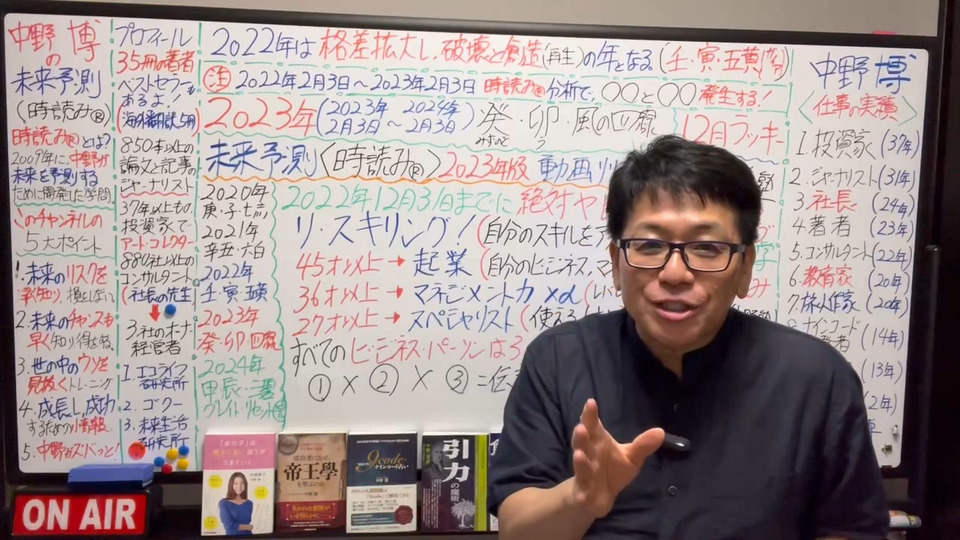 中野 博
の
未来予測
(時読み®)
時読み®とは?
2009年に、中野が
未来を予測する
ために開発した学問
このチャンネルの
5大ポイント
1.未来のリスクを
早く知り、損しない
2.未来のチャンスも
早く知り得する
3.世の中のウソを
見抜くトレーニング
4.成長し、成功
するための情報
5.中野がズバッと!
プロフィール
35冊の著者
ベストセラーも
あるよ!
(海外翻訳5冊)
850本以上の
論文と記事の
ジャーナリスト
37年以上もの
投資家で
アートコレクター
880社以上の
コンサルタント
(社長の先生)
3社のオーナー
経営者
1.エコライフ
研究所
2.ゴクー
3.未来生活
研究所
2022年は格差拡大し、破壊と創造(再生)の年となる(壬・寅・五黄
注 2022年2月3日〜2023年2月3日 時読み®分析で、〇〇と〇〇発生する!
2023年(2023年 2024年
2月3日〜2月3日) 癸・卯・風の四緑
みずのと う
12月ラッキー
未来予測〈時読み®〉2023年版 動画リ
2020年
庚・子・七赤
2021年
辛・丑・六白
2022年
壬・寅・五黄
2023年
癸・卯・四緑
2024年
甲・辰・三碧
グレイト・リセット
2022年12月31日までに 絶対ヤ
リ・スキリング!(自分のスキルをア
45才以上→起業(自分のビジネス、マ
36才以上→マネジメント力×α(
27才以上→スペシャリスト(使える
すべてのビジネスパーソンは3
①×②×③=伝
中野 博
〈仕事の実績〉
1.投資家(37年)
2.ジャーナリスト(31年)
3.社長(24年)
4.著者(23年)
5.コンサルタント(22年)
6.教育家(20年)
7.旅人作家(20年)
8.ナインコード
(14年)
(13年)
ON AIR
帝王學
9code
ナインコード占い
中野博
引力
の魔術